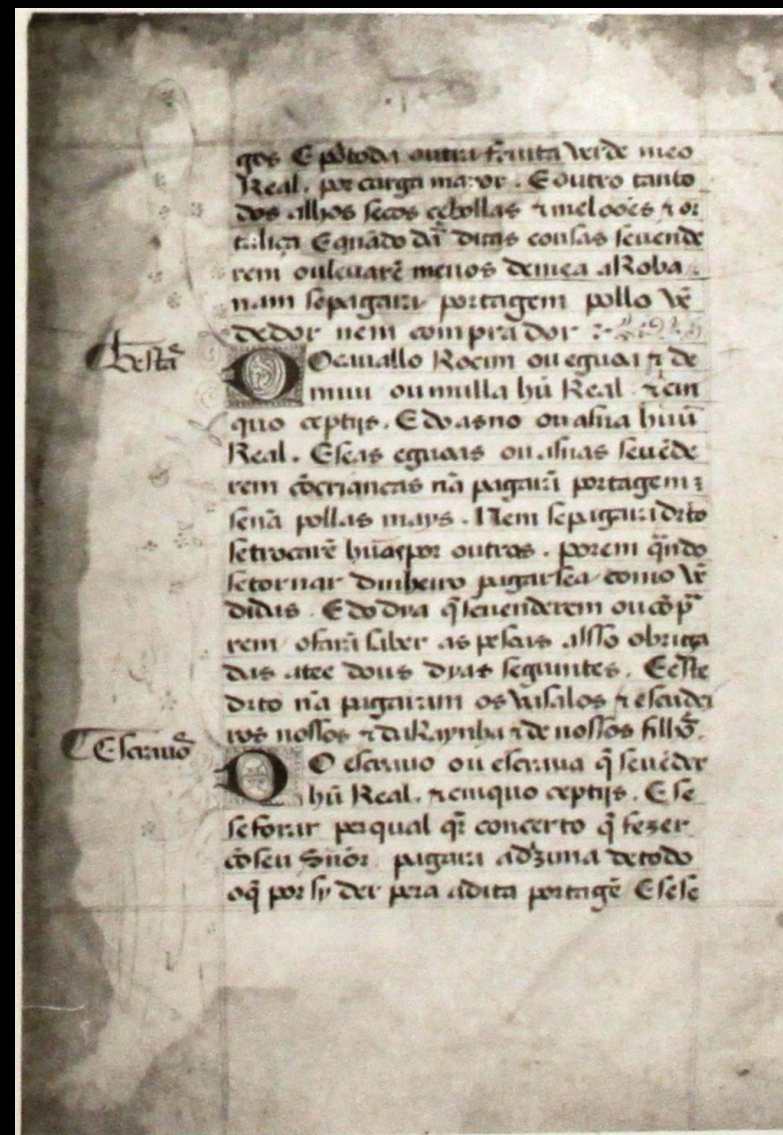 gos E por toda outra fruita verde meo
Real. por carga mayor. E outro tanto
dos alhos secos çebollas ⁊ melooes ⁊ or
taliça E quãdo das ditas cousas se vende
rem ou levarẽ menos de mea aRoba
nam se pagara portagem pollo vẽ
dedor nem comprador :~
Besta
DO cavallo Rocim ou eguoa ⁊ de
muu ou mulla hũ Real ⁊ çin
quo çeptijs. E do asno ou asna huũ
Real. E se as eguoas ou asnas se vẽde
rem cõ crianças nã pagarã portagem
senã pollas mays. Nem se pagara drto
se trocarẽ hũas por outras. porem quãdo
se tornar dinheiro pagarsea como vẽ
didas. E do dya q̃ se venderem ou cõp
rem o farã saber as pesoas a isso obriga
das atee dous dyas seguintes. E este
drto nã pagaram os vasalos ⁊ escudei
ros nossos ⁊ da Raynha ⁊ de nossos filhos.
Escravos
DO escravo ou escrava q̃ se vẽder
hũ Real. ⁊ cinquo çeptijs. E se
se forar por qual qr̃ concerto q̃ fezer
cõ seu Sñor pagara a dzima de todo
oq̃ por sy der pera a dita portagẽ E se se